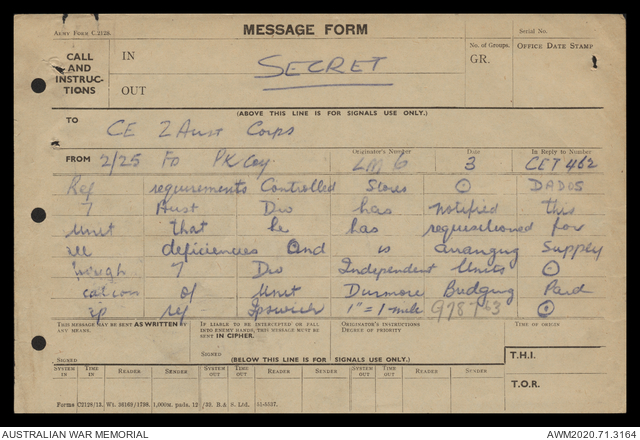 ARMY FORM C.2128.
MESSAGE FORM
Serial No.
CALL AND INSTRUCTIONS
IN
OUT
SECRET
No. of Groups.
GR.
OFFICE DATE STAMP
(ABOVE THIS LINE IS FOR SIGNALS USE ONLY.)
TO
CE 2 Aust Corps
FROM
Originator's Number
Date
In Reply to Number
2/25 FD PK Coy. LM 6 3 CET 462
Ref requirements Controlled Stores ⊙ DADOS
7 Aust Div has notified this
unit that he has requisitioned for
deficiencies and is arranging Supply
7 Div Independent Units ⊙
of Unit Bridging
ref Ipswich 1" = 1 mile ⊙
THIS MESSAGE MAY BE SENT AS WRITTEN BY ANY MEANS.
IF LIABLE TO BE INTERCEPTED OR FALL INTO ENEMY HANDS, THIS MESSAGE MUST BE SENT IN CIPHER.
ORIGINATOR'S INSTRUCTIONS
DEGREE OF PRIORITY
TIME OF ORIGIN
SIGNED
SIGNED
(BELOW THIS LINE IS FOR SIGNALS USE ONLY.)
SYSTEM IN TIME IN READER SENDER SYSTEM OUT TIME OUT READER SENDER SYSTEM OUT TIME OUT READER SENDER
T.H.I.
T.O.R.
AUSTRALIAN WAR MEMORIAL
AWM2020.71.3164